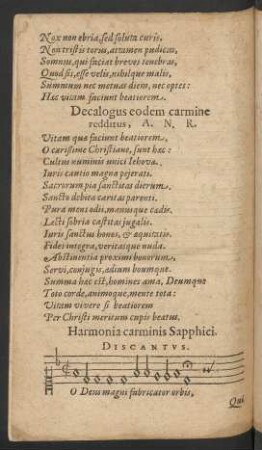 Nox non ebria, sed soluta curis,
Non tristis torus, attamen pudicus,
Somnus, qui faciat breves tenebras,
Quod sis, esse velis, nihilque malis,
Summum nec metuas diem, nec optes:
Hæc vitam faciunt beatiorem.
Decalogus eodem carmine
redditus, A. N. R.
Vitam quæ faciunt beatiorem,
O carissime Christiane, sunt hæc:
Cultus numinis unici Iehova,
Iuris cautio magna pejerati.
Sacrorum pia sanctitas dierum.
Sancto debita caritas parenti.
Pura mens odii, manusque cædis.
Lecti sobria castitas jugalis.
Iuris sanctus honos, & æquitatis.
Fides integra, veritasque nuda.
Abstinentia proximi bonorum,
Servi, conjugis, ædium boumque.
Summa hæc est, homines ama, Deumque
Toto corde, animoque, mente tota:
Vitam vivere si beatiorem
Per Christi meritum cupis beatus.
Harmonia carminis Sapphici.
DISCANTVS.
O Deus magni fabricator orbis,
Qui